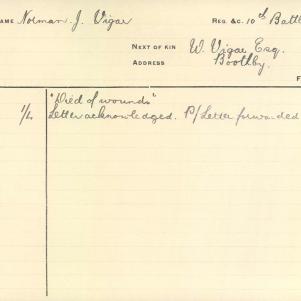 NAME Norman. J. Vigar REG. &C. 10th Battn
NEXT OF KIN W. Vigar Esq.
ADDRESS Boothby.
F
"Died of wounds"
Letter acknowledged. P/Letter forwarded